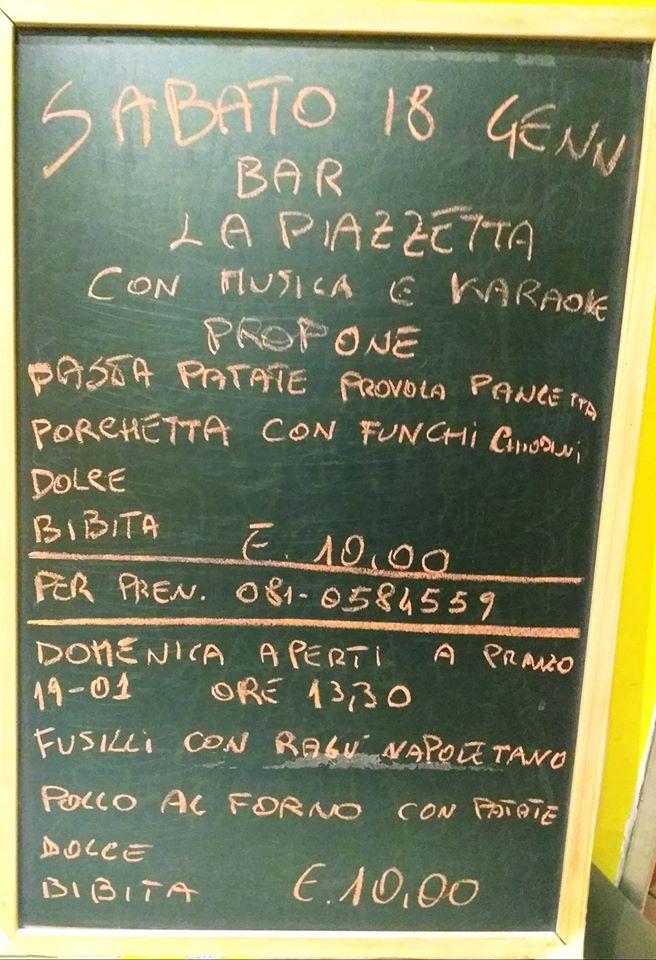 SABATO 18 GENN
BAR
LA PIAZZETTA
CON MUSICA E KARAOKE
PROPONE
PASTA PATATE PROVOLA PANCETTA
PORCHETTA CON FUNGHI CHIODINI
DOLCE
BIBITA €. 10,00
PER PREN. 081-0584559
DOMENICA APERTI A PRANZO
19-01 ORE 13,30
FUSILLI CON RAGÚ NAPOLETANO
POLLO AL FORNO CON PATATE
DOLCE
BIBITA €.10,00